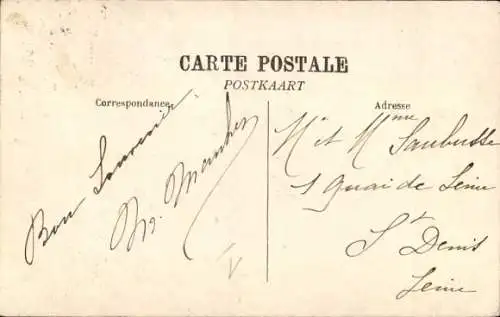 CARTE POSTALE
POSTKAART
Correspondance
Adresse
Bon Souvenir
Mr et Mme Saubusse
1 Quai de Seine
St Denis
Seine